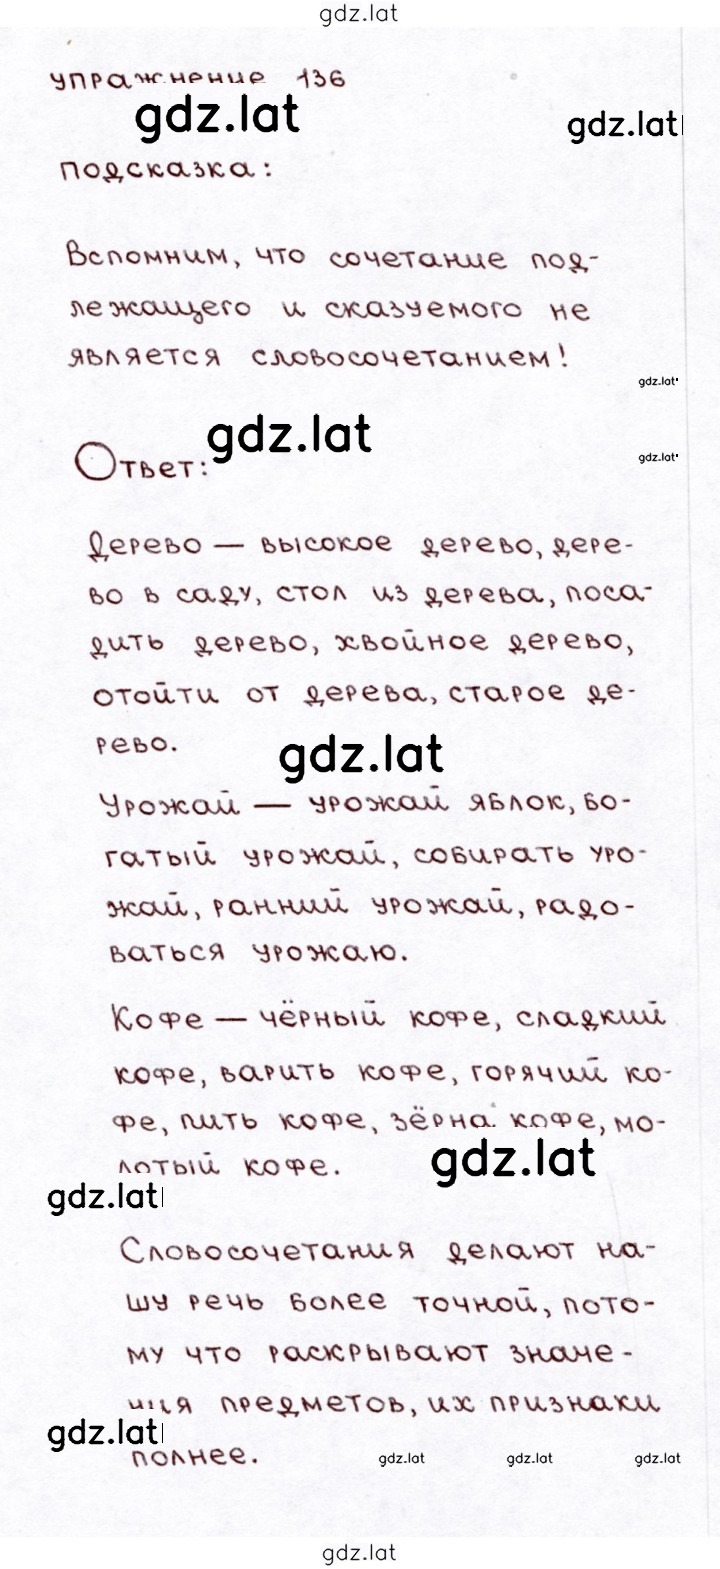 gdz.lat
упражнение 136
gdz.lat
gdz.lat
подсказка:
Вспомним, что сочетание под-
лежащего и сказуемого не
является словосочетанием!
gdz.lat
gdz.lat
Ответ:
gdz.lat
Дерево — высокое дерево, дере-
во в саду, стол из дерева, поса-
дить дерево, хвойное дерево,
отойти от дерева, старое де-
рево.
gdz.lat
Урожай — урожай яблок, бо-
гатый урожай, собирать уро-
жай, ранний урожай, радо-
ваться урожаю.
Кофе — чёрный кофе, сладкий
кофе, варить кофе, горячий ко-
фе, пить кофе, зёрна кофе, мо-
лотый кофе.
gdz.lat
gdz.lat
Словосочетания делают на-
шу речь более точной, пото-
му что раскрывают значе-
ния предметов, их признаки
gdz.lat
полнее.
gdz.lat gdz.lat gdz.lat
gdz.lat